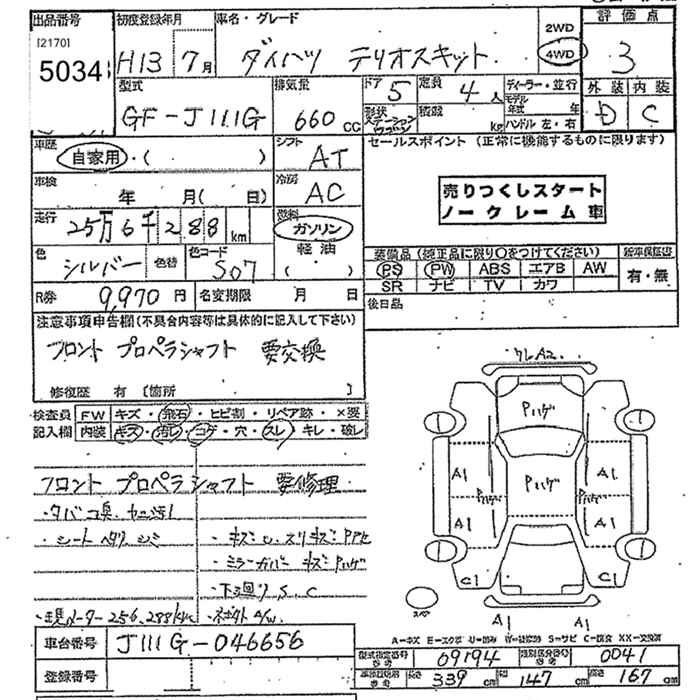 出品番号 初度登録年月 車名・グレード 2WD 評価点
[2170]
5034 H13 7月 ダイハツ テリオスキット 4WD 3
型式 排気量 ドア 5 定員 4人 ディーラー・並行 外装 内装
GF-J111G 660cc 形状 ステーションワゴン 積載 kg モデル年式 年 D C
ハンドル 左・右
車歴 自家用・( ) シフト AT セールスポイント (正常に機能するものに限ります)
車検 年 月(日) 冷房 AC
売りつくしスタート
ノークレーム車
走行 25万6千288km 燃料 ガソリン
軽油
( )
色 シルバー 色替 色コード S07
装備品 (純正品に限り○をつけてください) 新車保証書
PS PW ABS エアB AW 有・無
SR ナビ TV カワ
R券 9,970円 名変期限 月 日 後日品
注意事項申告欄(不具合内容等は具体的に記入して下さい)
フロント プロペラシャフト 要交換
修復歴 有 [箇所 ]
検査員 FW キズ・飛石・ヒビ割・リペア跡・×要
記入欄 内装 キズ・汚レ・コゲ・穴・スレ・キレ・破レ
フロント プロペラシャフト 要修理
・シート ヘタリ シミ
・ミラーカバー キズ Pハゲ
・下回り S.C
256,288km
車台番号 J111G-046656
登録番号
Pハゲ
A1 Pハゲ Pハゲ Pハゲ A1
A1 A1
C1 C1
A1 A1
A=キズ E=エクボ U=凹み W=波修跡 S=サビ C=腐食 XX=交換済
型式指定番号 参考 09194 類別区分番号 参考 0041
長さ 339cm 幅 147cm 高さ 167cm